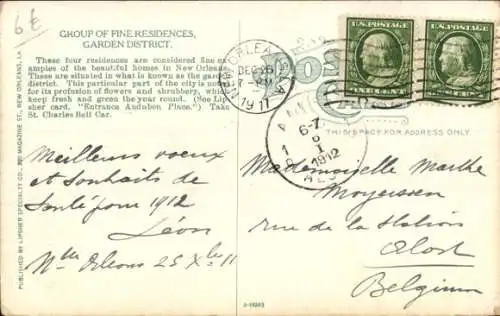 6 €
GROUP OF FINE RESIDENCES,
GARDEN DISTRICT.
These four residences are considered fine ex-
amples of the beautiful homes in New Orleans.
These are situated in what is known as the garden
district. This particular part of the city is noted
for its profusion of flowers and shrubbery, which
keep fresh and green the year round. (See Lip-
sher card. "Entrance Audubon Place.") Take
St. Charles Bell Car.
PUBLISHED BY LIPSHER SPECIALTY CO., 320 MAGAZINE ST., NEW ORLEANS, LA
NEW ORLEANS, LA
DEC 26
1911
U.S. POSTAGE
U.S. POSTAGE
ONE CENT
6-7
1912
THIS SPACE FOR ADDRESS ONLY.
Meilleurs voeux
et souhaits de
Santé pour 1912
Léon
Nlle Orléans 25 Xbre 11
Mademoiselle Marthe
Moyerssen
rue de la Station
Alost
Belgium